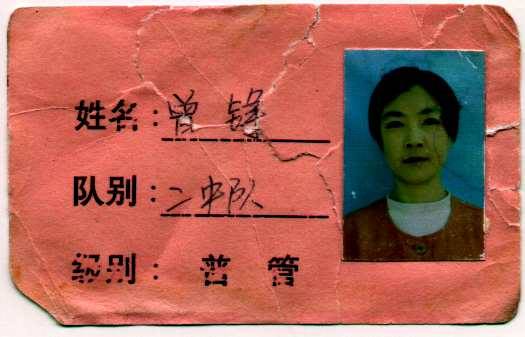 姓名：曾铎
队别：二中队
级别：普管